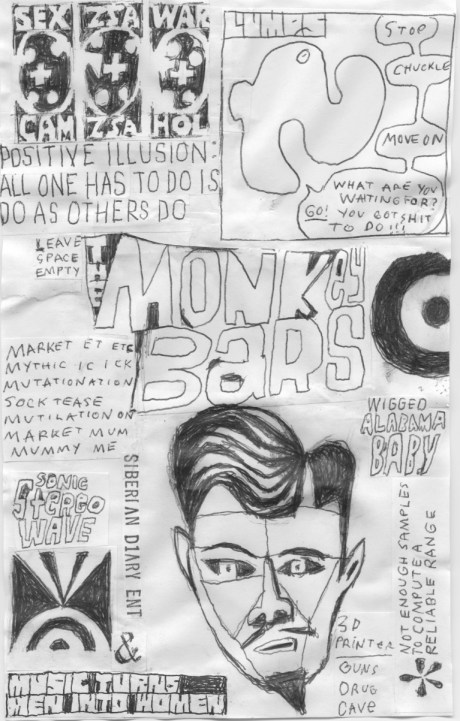 SEX ZSA WAR
CAM ZSA HOL
POSITIVE ILLUSION:
ALL ONE HAS TO DO IS
DO AS OTHERS DO
LUMPS
STOP
CHUCKLE
MOVE ON
WHAT ARE YOU
WAITING FOR?
GO! YOU GOT SHIT
TO DO!!!
LEAVE
SPACE
EMPTY
THE
MONKEY
BARS
MARKET ET ETC
MYTHIC IC ICK
MUTATIONATION
SOCK TEASE
MUTILATION ON
MARKET MUM
MUMMY ME
WIGGED
ALABAMA
BABY
SONIC
STEREO
WAVE
SIBERIAN DIARY ENT
&
NOT ENOUGH SAMPLES
TO COMPUTE A
RELIABLE RANGE
3D
PRINTER
GUNS
DRUG
CAVE
MUSIC TURNS
MEN INTO WOMEN